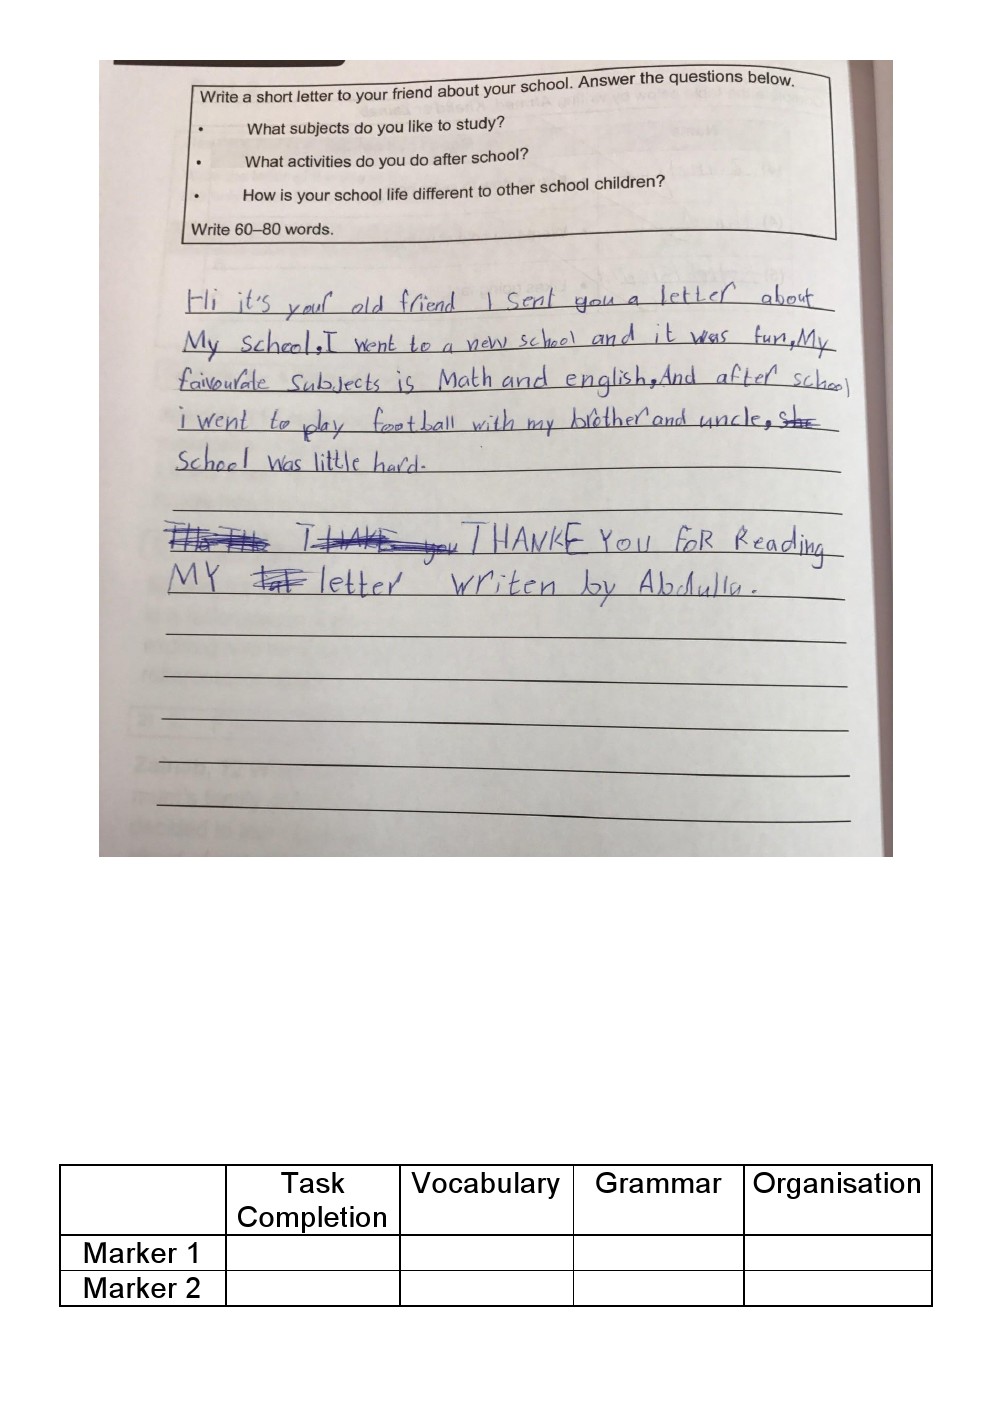 Write a short letter to your friend about your school. Answer the questions below.
• What subjects do you like to study?
• What activities do you do after school?
• How is your school life different to other school children?
Write 60–80 words.
Hi it's your old friend I sent you a letter about
My school, I went to a new school and it was fun, My
faivourate Subjects is Math and english, And after school
i went to play football with my brother and uncle, she
School was little hard.
THANKE YOU FOR Reading
MY letter writen by Abdulla.
Task Completion Vocabulary Grammar Organisation
Marker 1
Marker 2